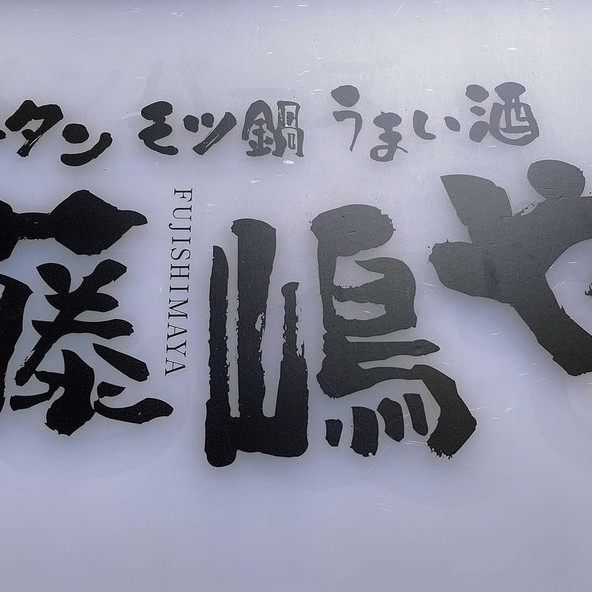 ータン モツ鍋 うまい酒
藤嶋や
FUJISHIMAYA